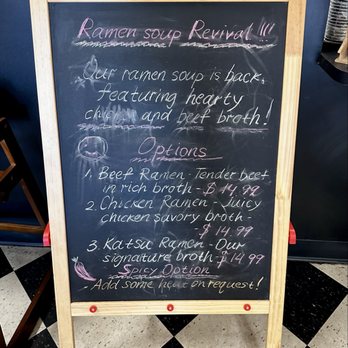 Ramen soup Revival!!!
Our ramen soup is back,
featuring hearty
chicken and beef broth!
Options
1. Beef Ramen - Tender beef
in rich broth - $14.99
2. Chicken Ramen - Juicy
chicken savory broth -
- $14.99
3. Katsu Ramen - Our
signature broth - $14.99
Spicy Option
- Add some heat on request!